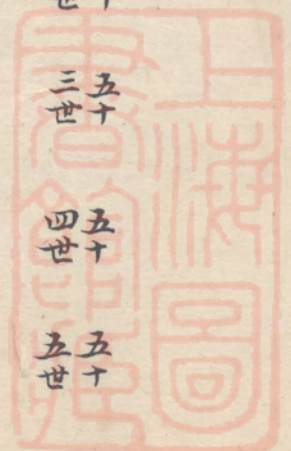 五十
三世
五十
四世
五十
五世
上海圖
書館藏